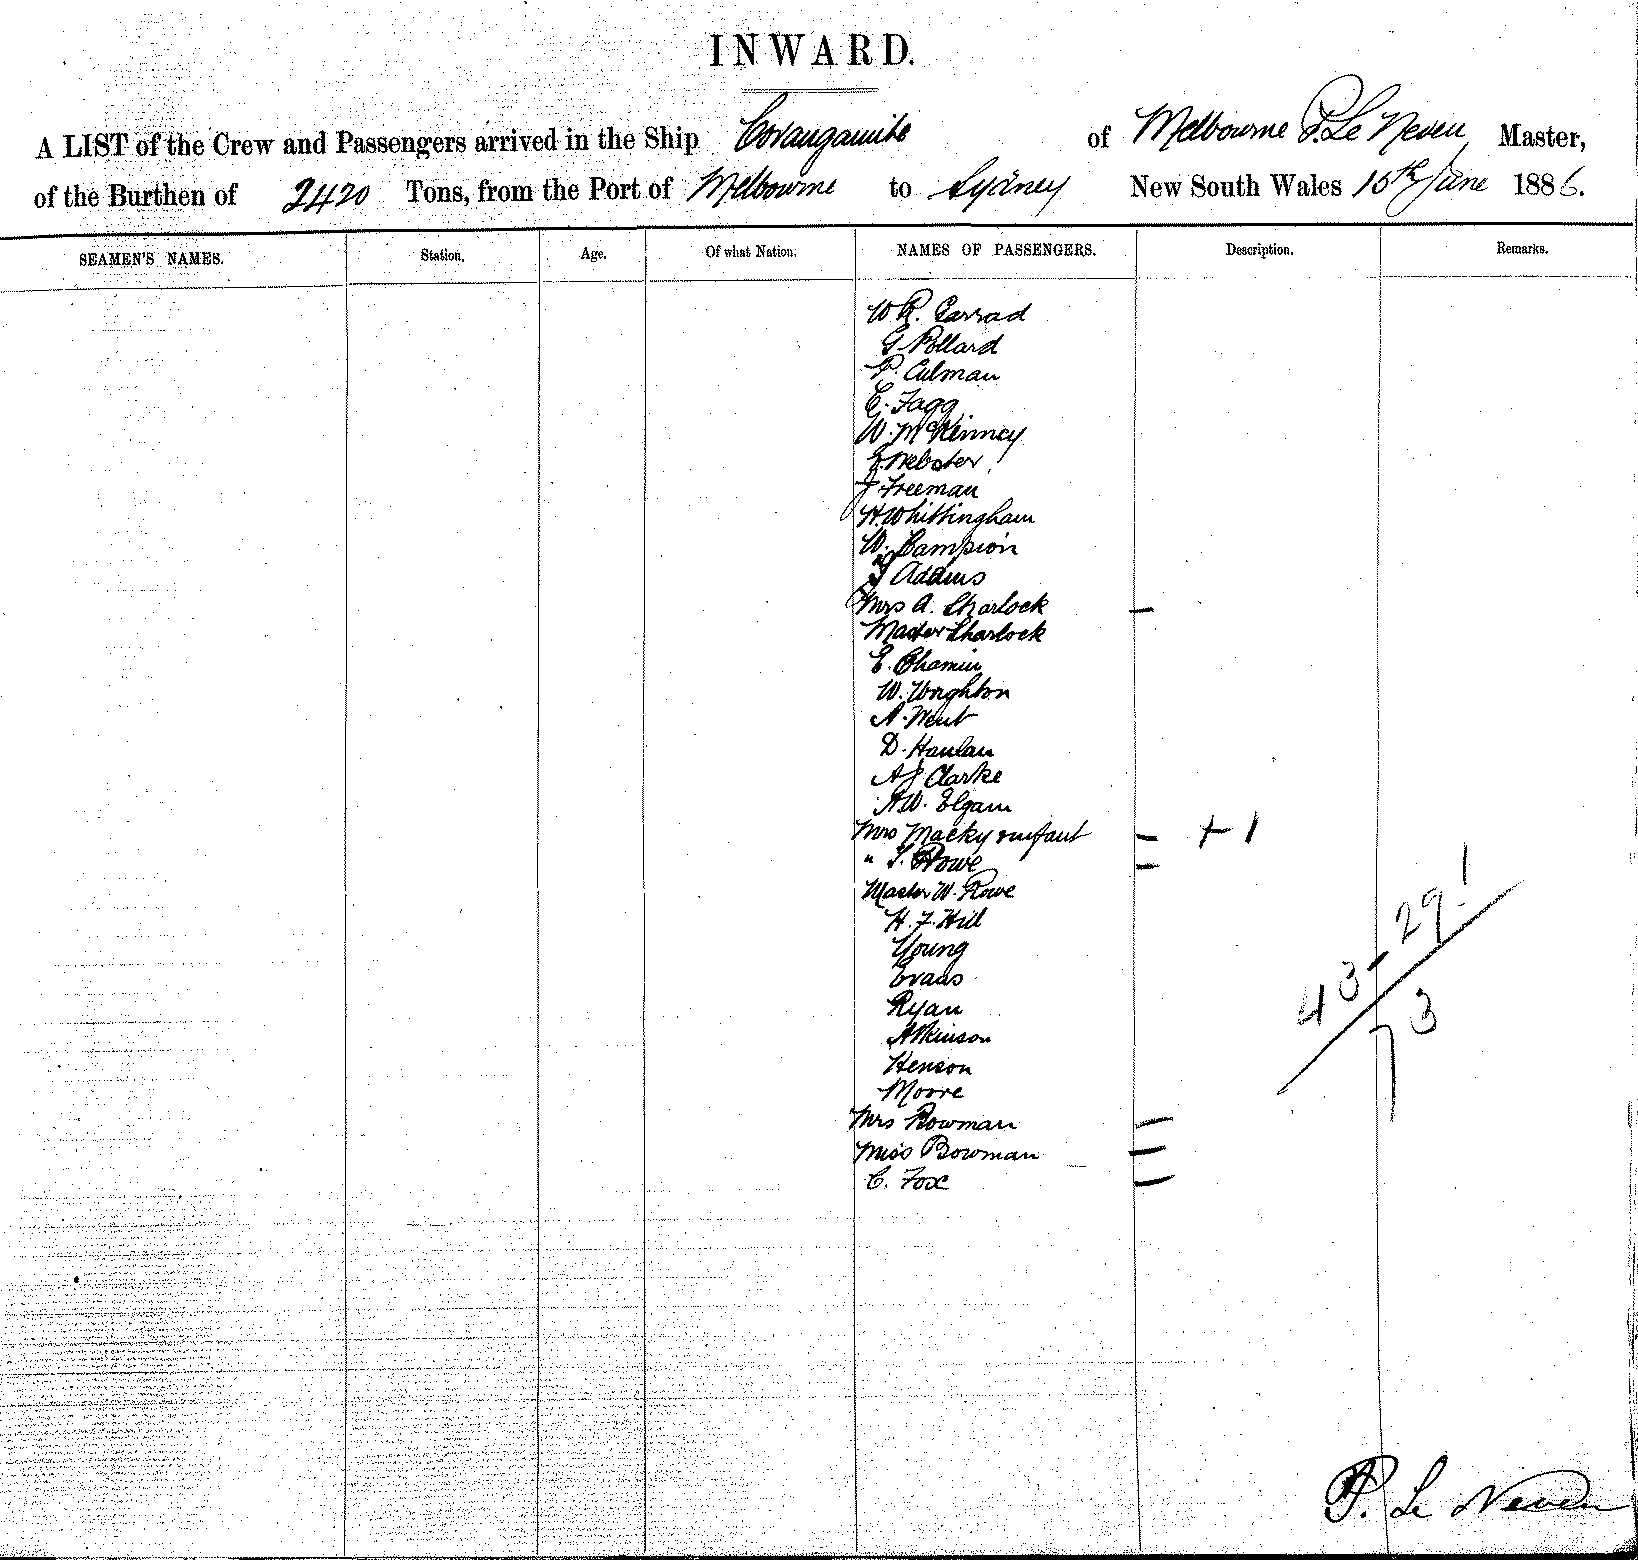 INWARD.
A LIST of the Crew and Passengers arrived in the Ship Corangamite of Melbourne P. Le Neveu Master,
of the Burthen of 2420 Tons, from the Port of Melbourne to Sydney New South Wales 16th June 1886.
SEAMEN'S NAMES. Station. Age. Of what Nation. NAMES OF PASSENGERS. Description. Remarks.
W R. Carrad
G Pollard
P. Culman
E. Fagg
W. McKinney
Webster
J Freeman
H. Whittingham
W. Campion
J Adams
Mrs A. Sharlock —
Master Sharlock
E. Chamin
W. Wrighton
A. Went
D. Hanlan
A J Clarke
A W. Elgam
Mrs Macky & infant — + 1
" S. Rowe —
Master W. Rowe
H. F. Hill
Young
Evans
Ryan
Atkinson
Henson
Moore
Mrs Bowman —
Miss Bowman —
C. Fox —
29 1
43
73
P. Le Neveu